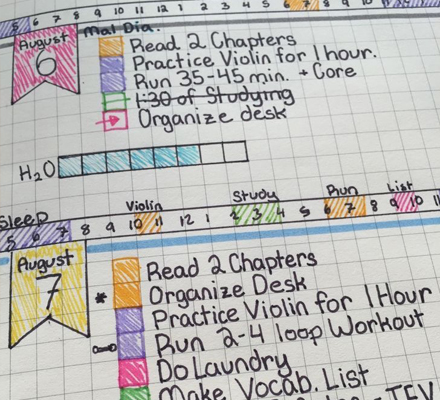 5 6 7 8 9 10 11 12 1 2 3 4 5 6 7 8 9 10 11
Mal Dia.
August
6
Read 2 Chapters
Practice Violin for 1 hour.
Run 35-45 min. + Core
1:30 of Studying
Organize desk
H2O
Sleep Violin Study Run List
5 6 7 8 9 10 11 12 1 2 3 4 5 6 7 8 9 10 11
August
7
Read 2 Chapters
Organize Desk
Practice Violin for 1 Hour
Run 2-4 loop Workout
Do Laundry
Make Vocab. List